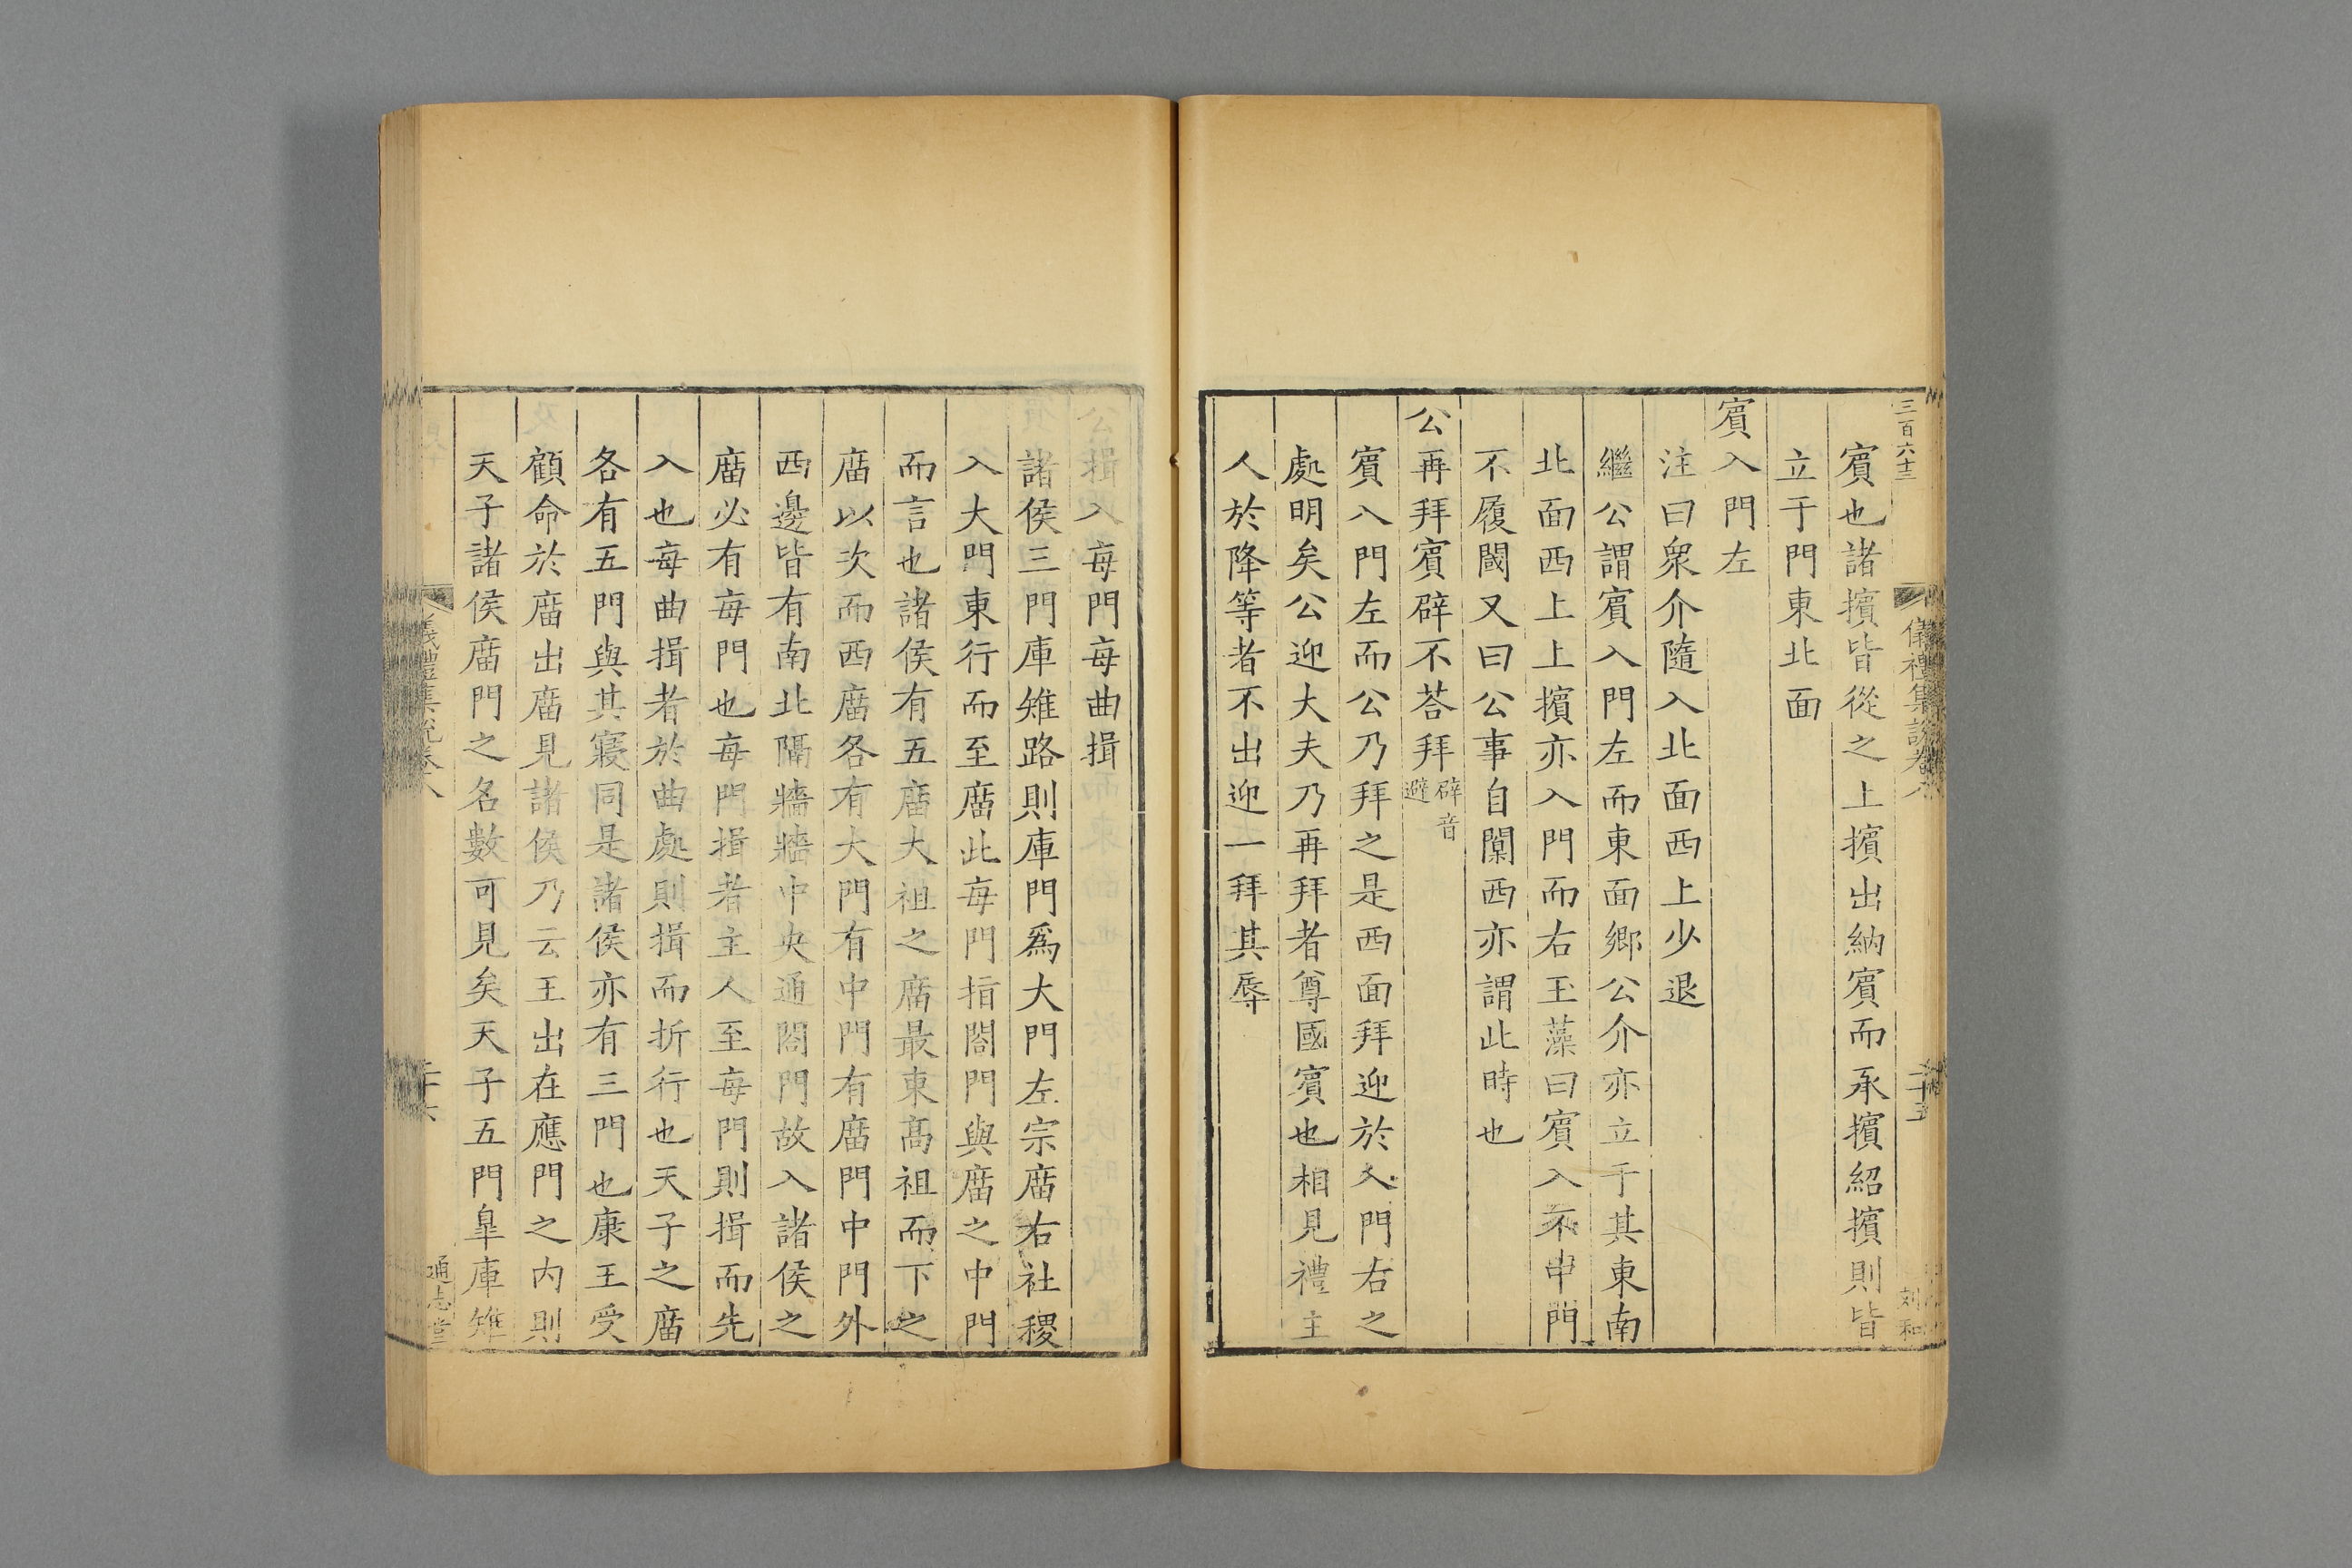 三百六十三
儀禮集說卷八
二十五
刘和
賔也諸擯皆從之上擯出納賔而承擯紹擯則皆
立于門東北面
賔入門左
注曰衆介隨入北面西上少退
繼公謂賔入門左而東面鄉公介亦立于其東南
北面西上上擯亦入門而右玉藻曰賔入不中門
不履閾又曰公事自闑西亦謂此時也
公再拜賔辟不荅拜辟音避
賔入門左而公乃拜之是西面拜迎於入門右之
處明矣公迎大夫乃再拜者尊國賔也相見禮主
人於降等者不出迎一拜其辱
公揖入每門每曲揖
諸侯三門庫雉路則庫門爲大門左宗庿右社稷
入大門東行而至庿此每門指閤門與庿之中門
而言也諸侯有五庿大祖之庿最東高祖而下之
庿以次而西庿各有大門有中門有庿門中門外
西邊皆有南北隔牆牆中央通閤門故入諸侯之
庿必有每門也每門揖者主人至每門則揖而先
入也每曲揖者於曲處則揖而折行也天子之庿
各有五門與其寢同是諸侯亦有三門也康王受
顧命於庿出庿見諸侯乃云王出在應門之内則
天子諸侯庿門之名數可見矣天子五門臯庫雉
儀禮集說卷八
二十六
通志堂